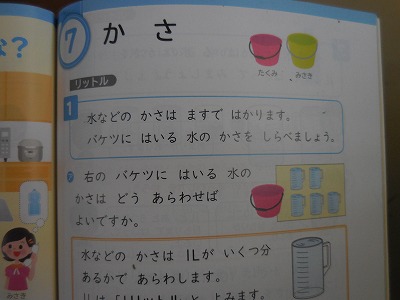 な?
7 かさ
たくみ みさき
リットル
1
水などの かさは ますで はかります。
バケツに はいる 水の かさを しらべましょう。
ア 右の バケツに はいる 水の
かさは どう あらわせば
よいですか。
水などの かさは 1Lが いくつ分
あるかで あらわします。
1Lは「1リットル」と よみます。
みさき